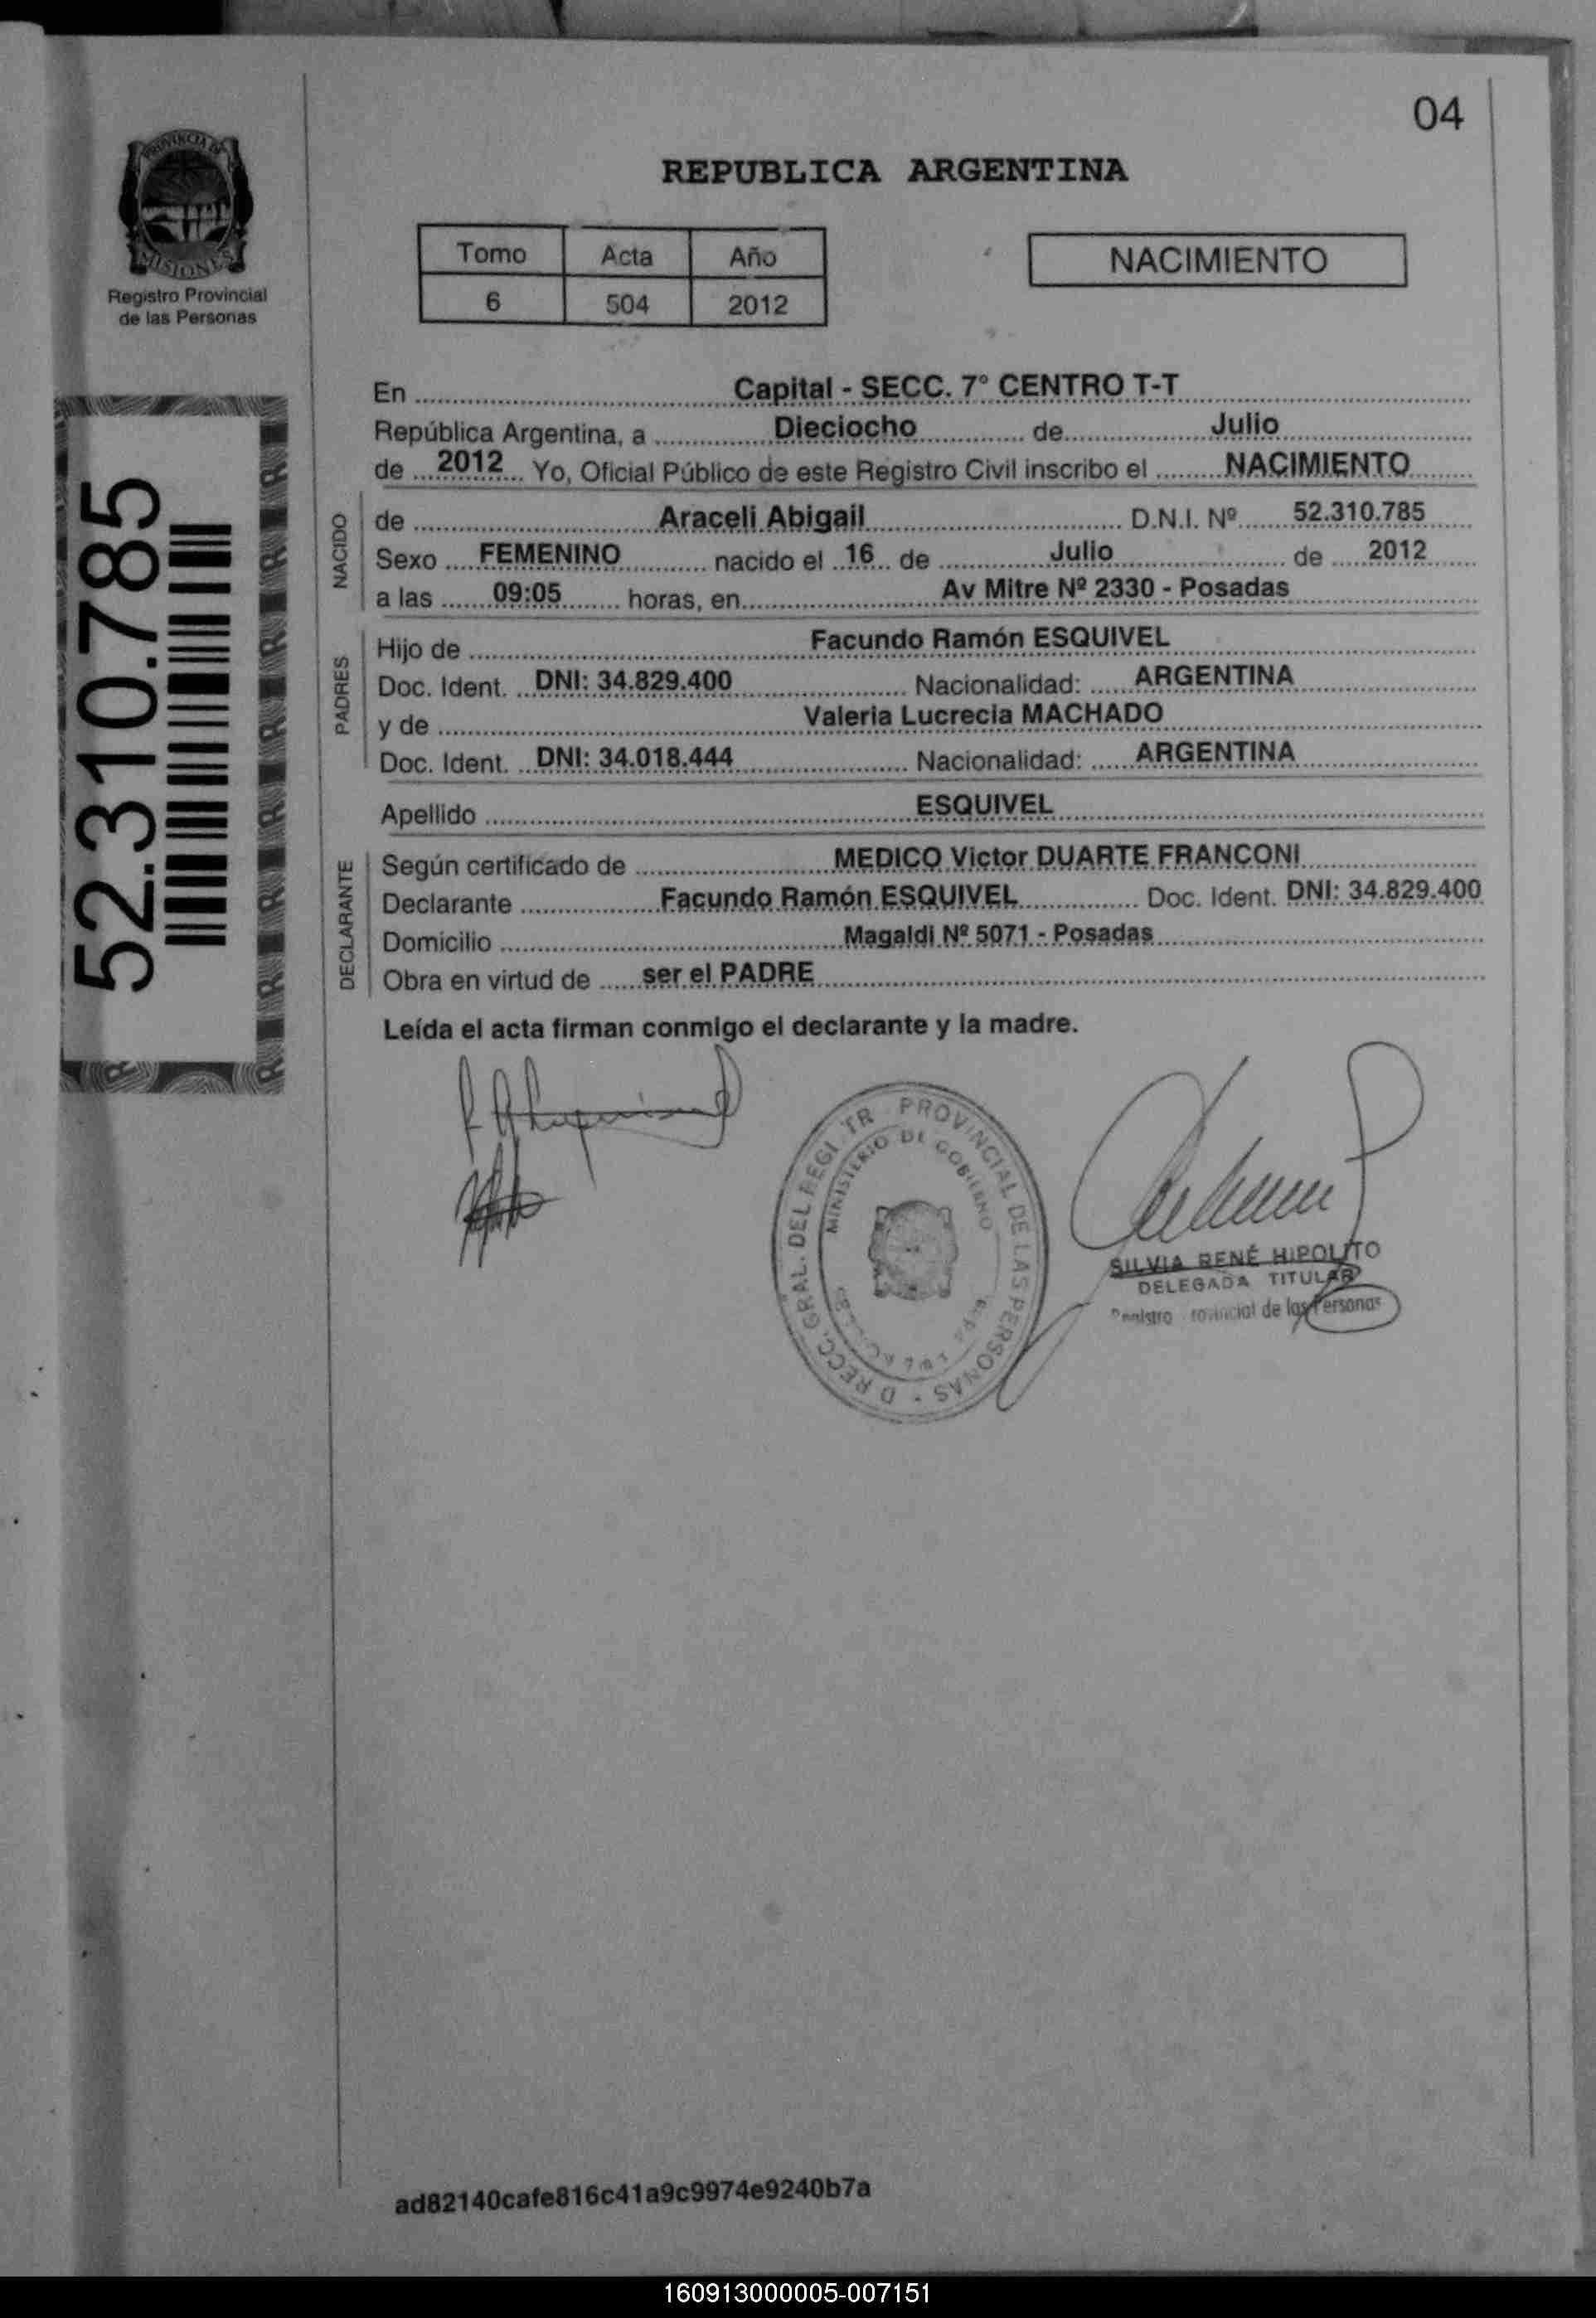 04
PROVINCIA DE
MISIONES
Registro Provincial
de las Personas
REPUBLICA ARGENTINA
Tomo Acta Año
6 504 2012
NACIMIENTO
52.310.785
En Capital - SECC. 7° CENTRO T-T
República Argentina, a Dieciocho de Julio
de 2012 Yo, Oficial Público de este Registro Civil inscribo el NACIMIENTO
NACIDO
de Araceli Abigail D.N.I. Nº 52.310.785
Sexo FEMENINO nacido el 16 de Julio de 2012
a las 09:05 horas, en Av Mitre Nº 2330 - Posadas
PADRES
Hijo de Facundo Ramón ESQUIVEL
Doc. Ident. DNI: 34.829.400 Nacionalidad: ARGENTINA
y de Valeria Lucrecia MACHADO
Doc. Ident. DNI: 34.018.444 Nacionalidad: ARGENTINA
Apellido ESQUIVEL
DECLARANTE
Según certificado de MEDICO Victor DUARTE FRANCONI
Declarante Facundo Ramón ESQUIVEL Doc. Ident. DNI: 34.829.400
Domicilio Magaldi Nº 5071 - Posadas
Obra en virtud de ser el PADRE
Leída el acta firman conmigo el declarante y la madre.
GRAL. DEL REGI TR PROVINCIAL DE LAS PERSONAS
MINISTERIO DE GOBIERNO
SILVIA RENÉ HIPOLITO
DELEGADA TITULAR
de las Personas
ad82140cafe816c41a9c9974e9240b7a
160913000005-007151